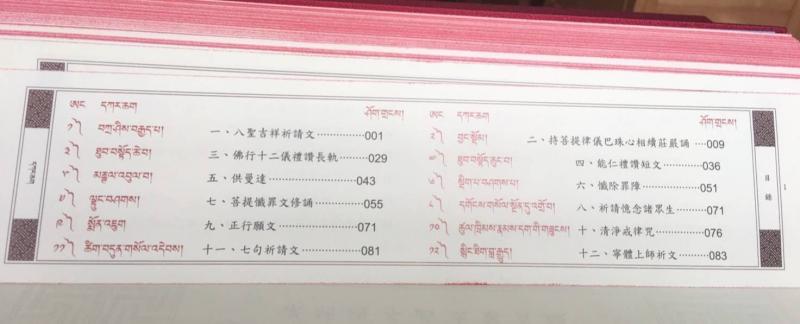 ཨང་ དཀར་ཆག ཤོག་གྲངས། ཤོག་གྲངས།
༡༽ བཀྲ་ཤིས་བརྒྱད་པ། 一、八聖吉祥祈請文 ············001 ༢༽ བྱང་སྡོམ། 二、持菩提律儀巴珠心相續莊嚴誦 ····009
༣༽ ཐུབ་བསྟོད་ཆེ་བ། 三、佛行十二儀禮讚長軌 ·········029 ༤༽ ཐུབ་བསྟོད་ཆུང་བ། 四、能仁禮讚短文 ············036
༥༽ མཎྜལ་འབུལ་བ། 五、供曼達 ····················043 ༦༽ སྡིག་པ་བཤགས་པ། 六、懺除罪障 ················051
༧༽ ལྟུང་བཤགས། 七、菩提懺罪文修誦 ·············055 ༨༽ དགོངས་གསོལ་སྔོན་དུ་འགྲོ་བ། 八、祈請憶念諸眾生 ·········071
༩༽ སྨོན་འཇུག 九、正行願文 ··················071 ༡༠༽ ཚུལ་ཁྲིམས་རྣམ་དག་གི་གཟུངས། 十、清淨戒律咒 ············076
༡༡༽ ཚིག་བདུན་གསོལ་འདེབས། 十一、七句祈請文 ············081 ༡༢༽ སྙིང་ཐིག་བླ་རྒྱུད། 十二、寧體上師祈文 ·········083
དཀར་ཆག
目錄
1